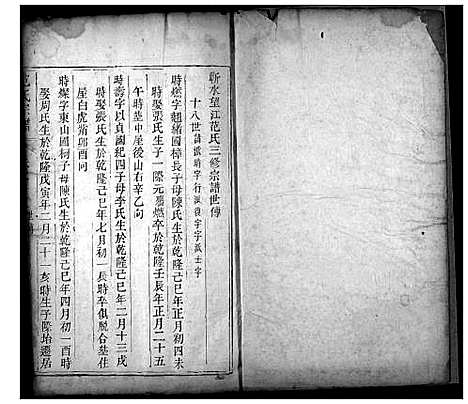 蘄水望江范氏三修宗譜世傳
十八世諱 時字行派 字 字派士字
時燦字趙緒國樟長子母陳氏生於乾隆己巳年正月初四未
時娶張氏生子一際元 燃卒於乾隆壬辰年正月二十五
午時塟中屋後山右辛乙向
時壽字以貞國紀四子母李氏生於乾隆己巳年二月十三戌
時娶張氏生於乾隆己巳年七月初一長時卒俱脫合塟住
屋白虎 卯酉向
時燦字東山國柯子母陳氏生於乾隆己巳年四月初一酉時
娶周氏生於乾隆戊寅年二月二十一亥時生子際 遷居